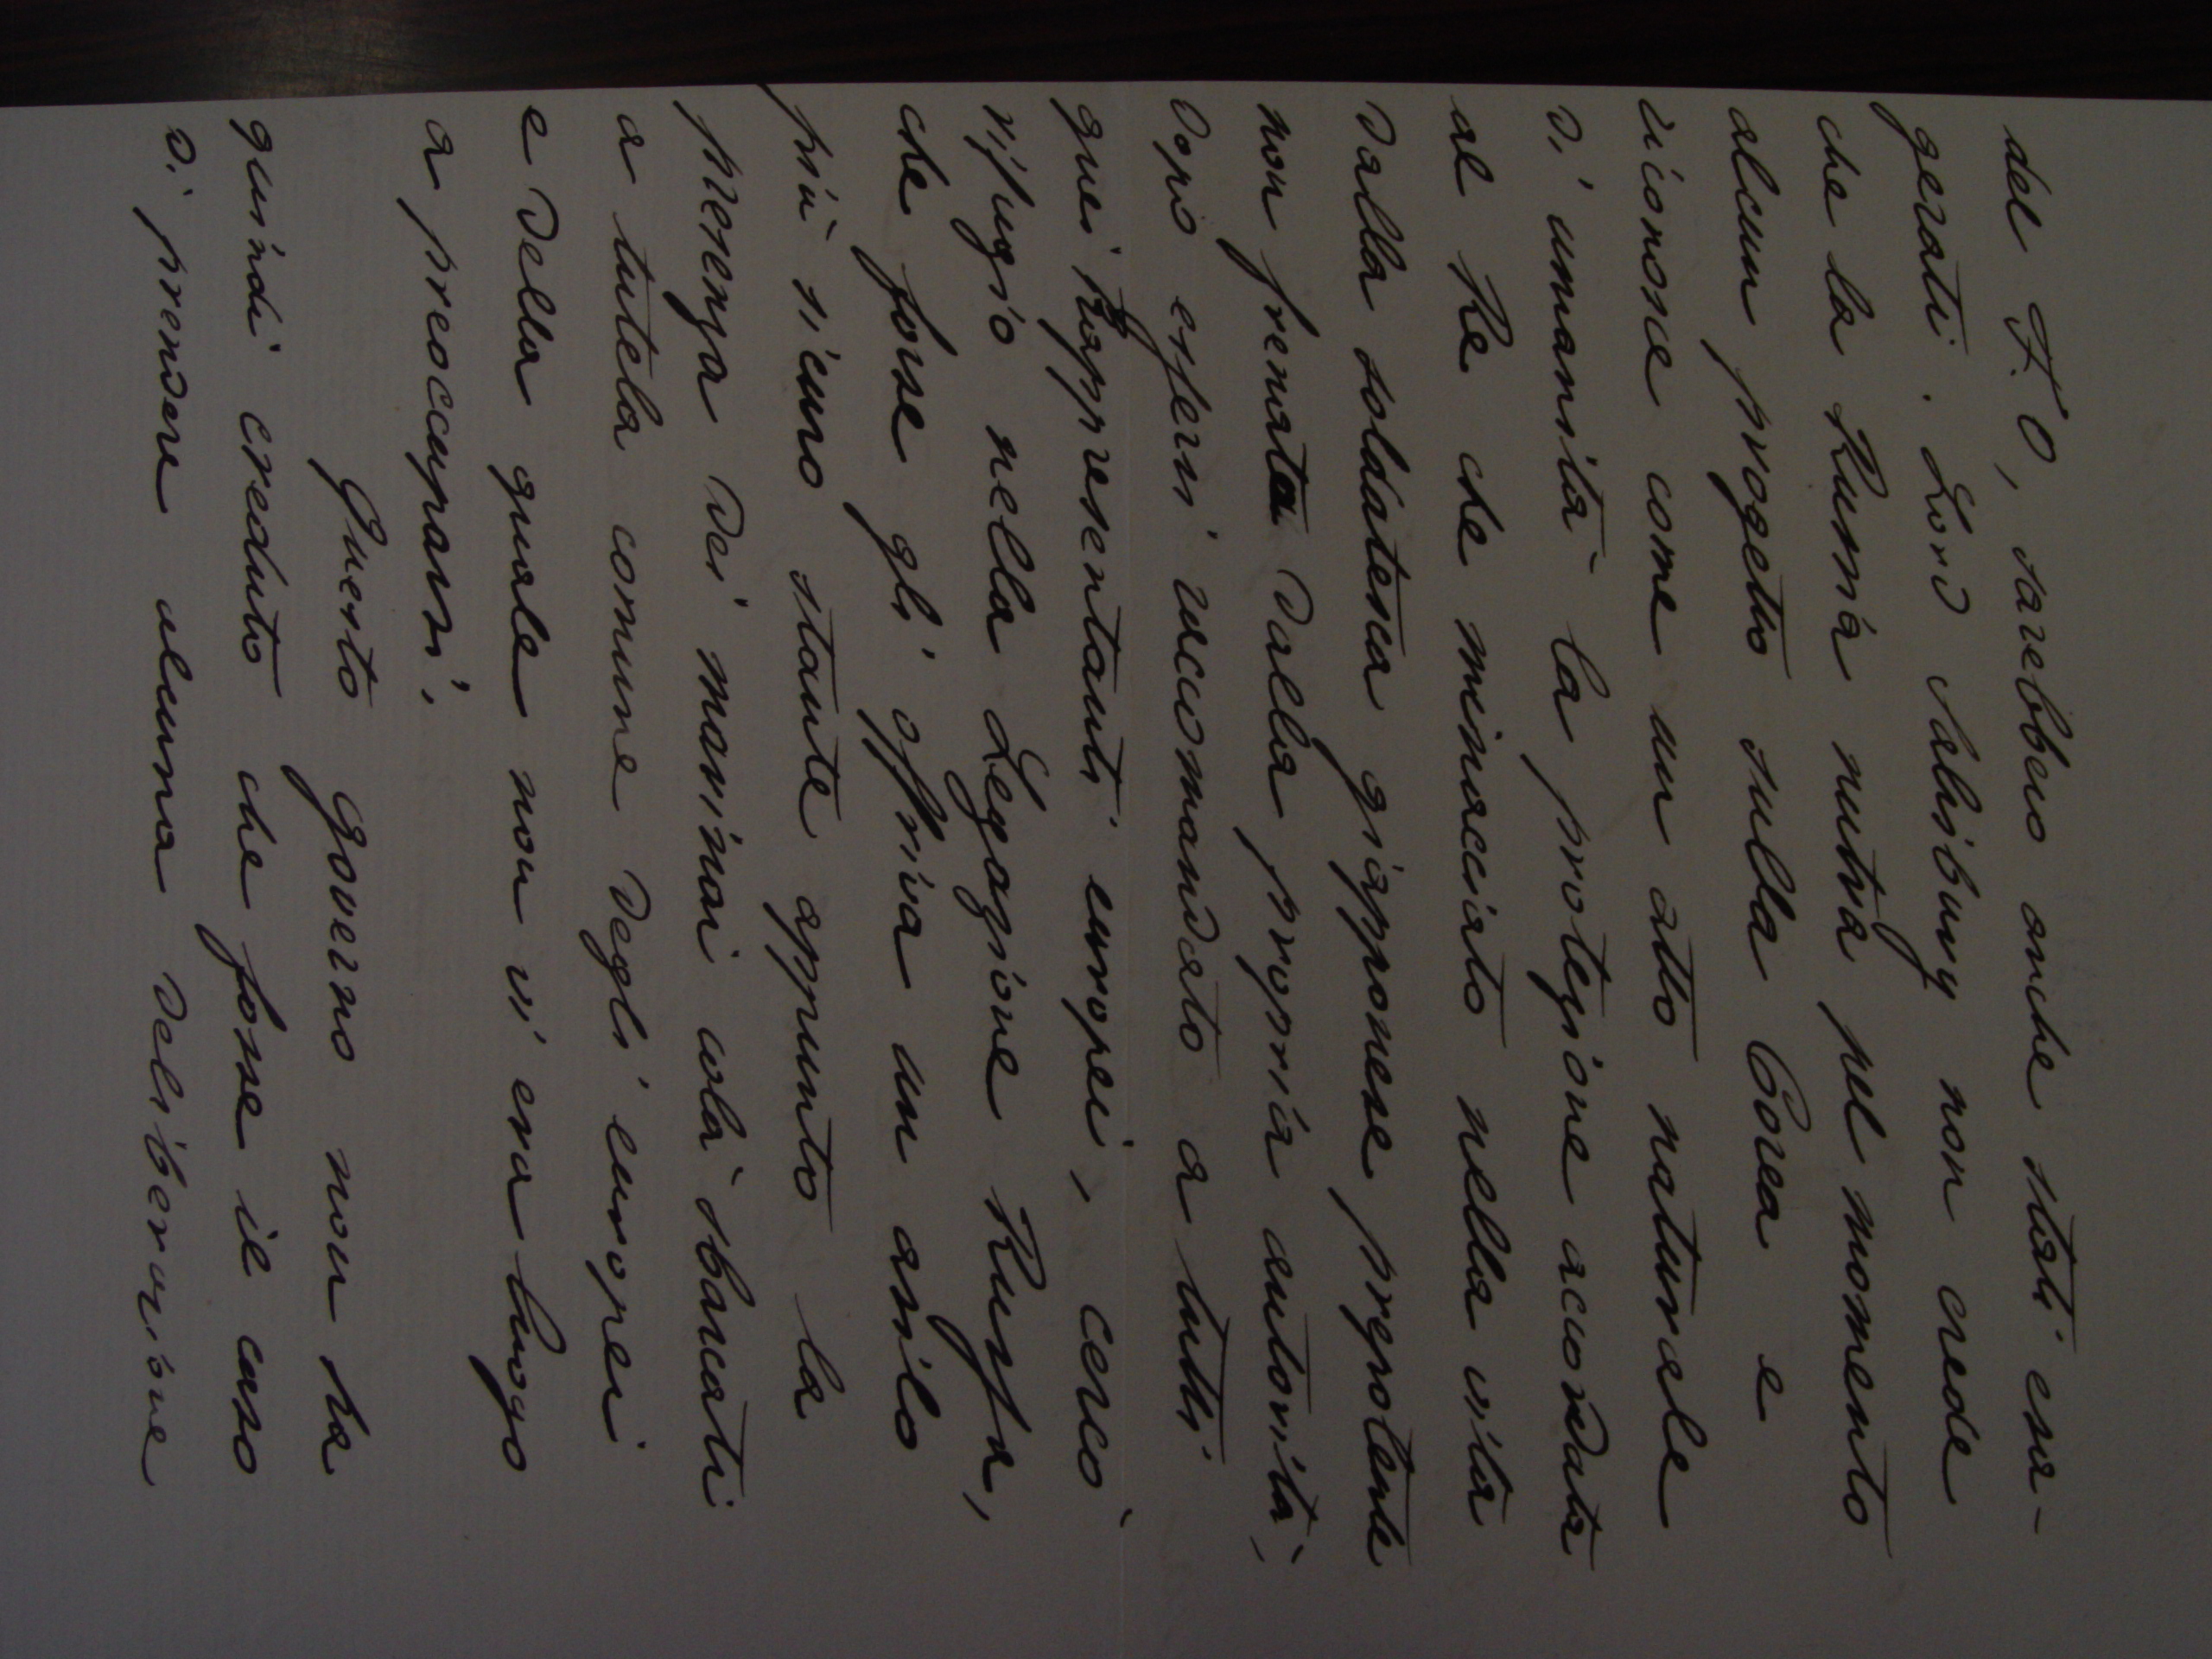 del F. O, sarebbero anche stati esa-
gerati. Lord Salisbury non crede
che la Russia nutra pel momento
alcun progetto sulla Corea e
riconosce come un atto naturale
di umanità la protezione accordata
al Re che minacciato nella vita
dalla soldatesca giapponese prepotente
non frenata dalla propria autorità,
dopo essersi raccomandato a tutti
quei Rappresentanti europei, cercò
rifugio nella Legazione Russa,
che forse gli offriva un asilo
più sicuro stante appunto la
presenza dei marinai colà sbarcati
a tutela comune degli europei
e della quale non vi era luogo
a preoccuparsi.
Questo governo non ha
quindi creduto che fosse il caso
di prendere alcuna deliberazione